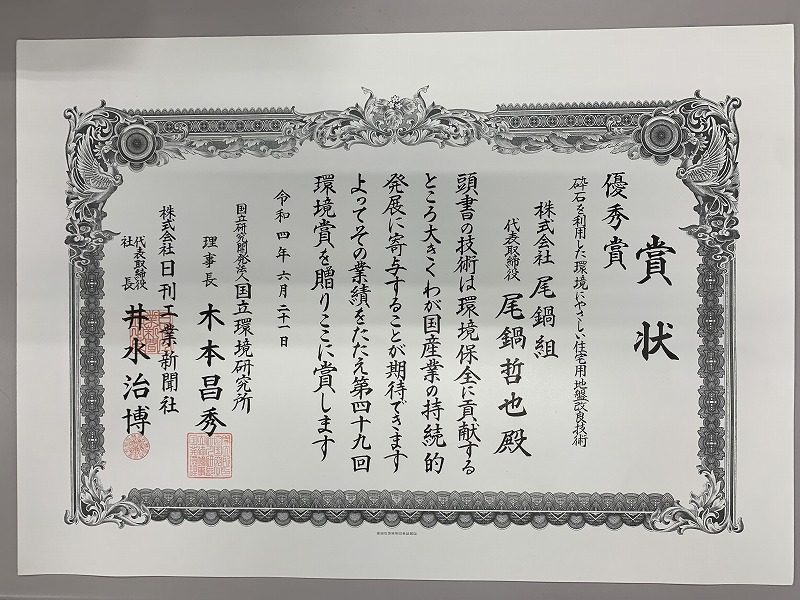 賞状
優秀賞
砕石を利用した環境にやさしい住宅用地盤改良技術
株式会社 尾鍋組
代表取締役 尾鍋哲也殿
頭書の技術は環境保全に貢献する
ところ大きくわが国産業の持続的
発展に寄与することが期待できます
よってその業績をたたえ第四十九回
環境賞を贈りここに賞します
令和四年六月二十一日
国立研究開発法人国立環境研究所
理事長 木本昌秀
株式会社日刊工業新聞社
代表取締役社長 井水治博